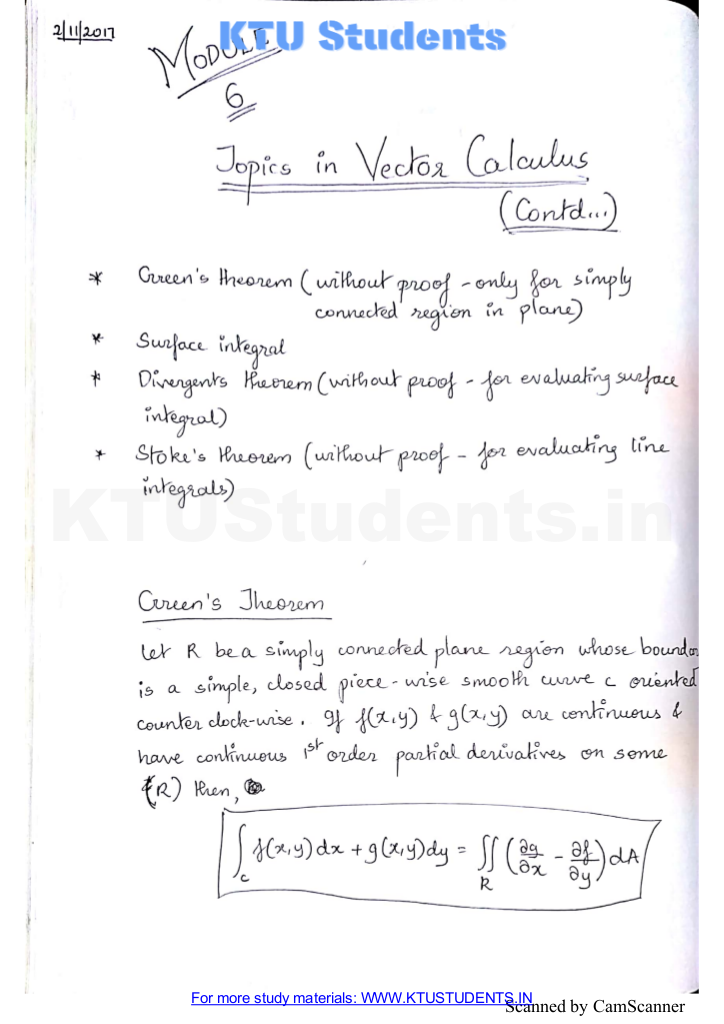 2/11/2017
KTU Students
MODULE
6
Topics in Vector Calculus
(Contd...)
* Green's theorem (without proof - only for simply
connected region in plane)
* Surface integral
* Divergents theorem (without proof - for evaluating surface
integral)
* Stoke's theorem (without proof - for evaluating line
integrals)
KTUStudents.in
Green's Theorem
Let R be a simply connected plane region whose boundar
is a simple, closed piece-wise smooth curve c oriented
counter clock-wise. If f(x,y) & g(x,y) are continuous &
have continuous 1st order partial derivatives on some
(R) then,
∫c f(x,y) dx + g(x,y) dy = ∬R (∂g/∂x - ∂f/∂y) dA
For more study materials: WWW.KTUSTUDENTS.IN
Scanned by CamScanner